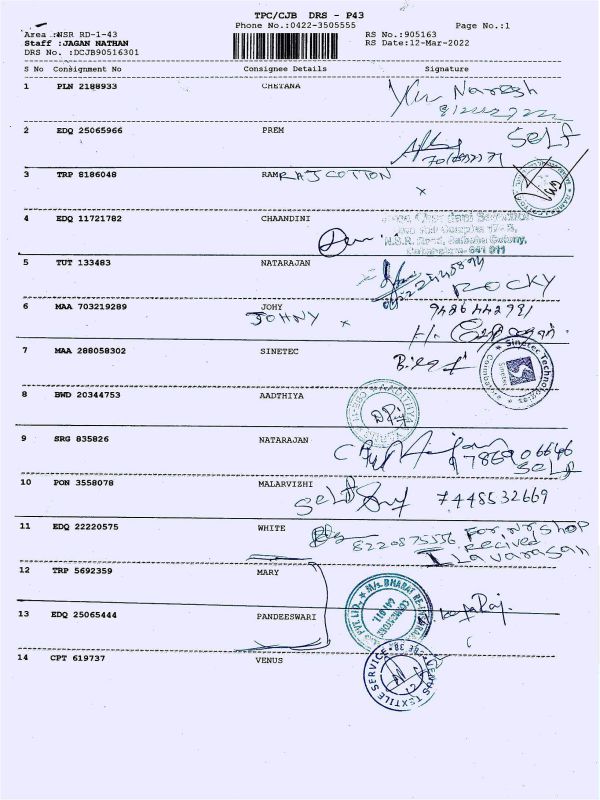 TPC/CJB DRS - P43
Area :NSR RD-1-43 Phone No.:0422-3505555 Page No.:1
Staff :JAGAN NATHAN RS No.:905163
DRS No. :DCJB90516301 RS Date:12-Mar-2022
S No Consignment No Consignee Details Signature
1 PLN 2188933 CHETANA Naresh
2 EDQ 25065966 PREM Self
3 TRP 8186048 RAM RAJ COTTON x
4 EDQ 11721782 CHAANDINI
N.S.R. Road, Saibaba Colony,
5 TUT 133483 NATARAJAN
ROCKY
6 MAA 703219289 JOHY 9486442991
JOHNY x
7 MAA 288058302 SINETEC
Sinetec Technologies
8 BWD 20344753 AADTHIYA
9 SRG 835826 NATARAJAN
786906646
Self
10 PON 3558078 MALARVIZHI
Self 7448532669
11 EDQ 22220575 WHITE For NR Shop
8220875556 Recived
Ilavarasan
12 TRP 5692359 MARY
M/s. BHARAT
13 EDQ 25065444 PANDEESWARI
14 CPT 619737 VENUS
VENUS TEXTILE SERVICE